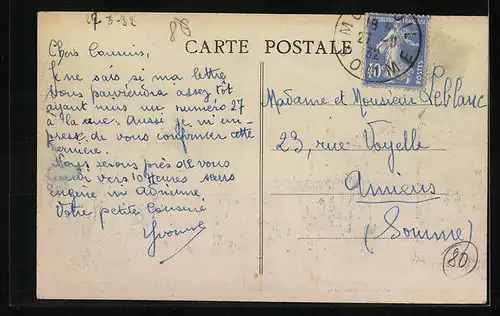 27-8-32
80
CARTE POSTALE
Chers Cousins,
Je ne sais si ma lettre
vous parviendra assez tôt
ayant mis un numéro 27
à la rue. Aussi je m'em-
presse de vous confirmer cette
dernière.
Nous serons près de vous
lundi vers 10 heures sans
Votre petite Cousine
Yvonne
Madame et Monsieur Leblanc
23, rue Voyelle
Amiens
(Somme)
80